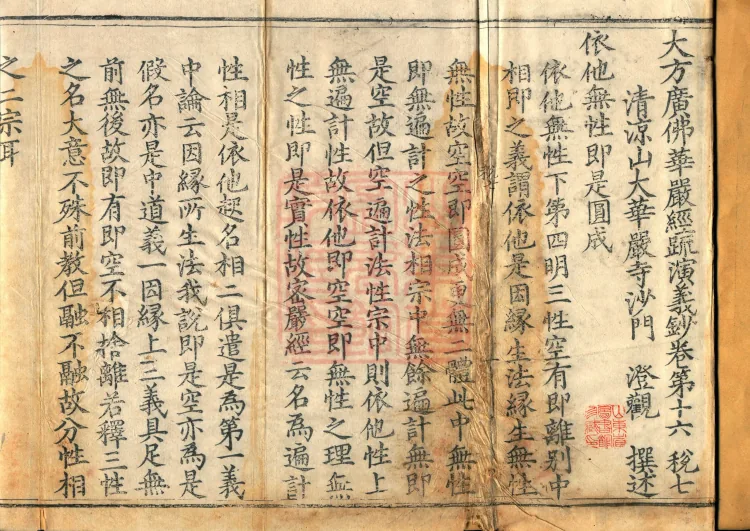 大方廣佛華嚴經疏演義鈔卷第十六　稅七
清涼山大華嚴寺沙門　澄觀　撰述
依他無性即是圓成
依他無性下第四明三性空有即離別中
相即之義謂依他是因緣生法緣生無性
無性故空空即圓成更無二體此中無性
即無遍計之性法相宗中無餘遍計無即
是空故但空遍計法性宗中則依他性上
無遍計性故依他即空空即無性之理無
性之性即是實性故密嚴經云名為遍計
性相是依他起名相二俱遣是為第一義
中論云因緣所生法我說即是空亦為是
假名亦是中道義一因緣上三義具足無
前無後故即有即空不相捨離若釋三性
之名大意不殊前教但融不融故分性相
之二宗耳